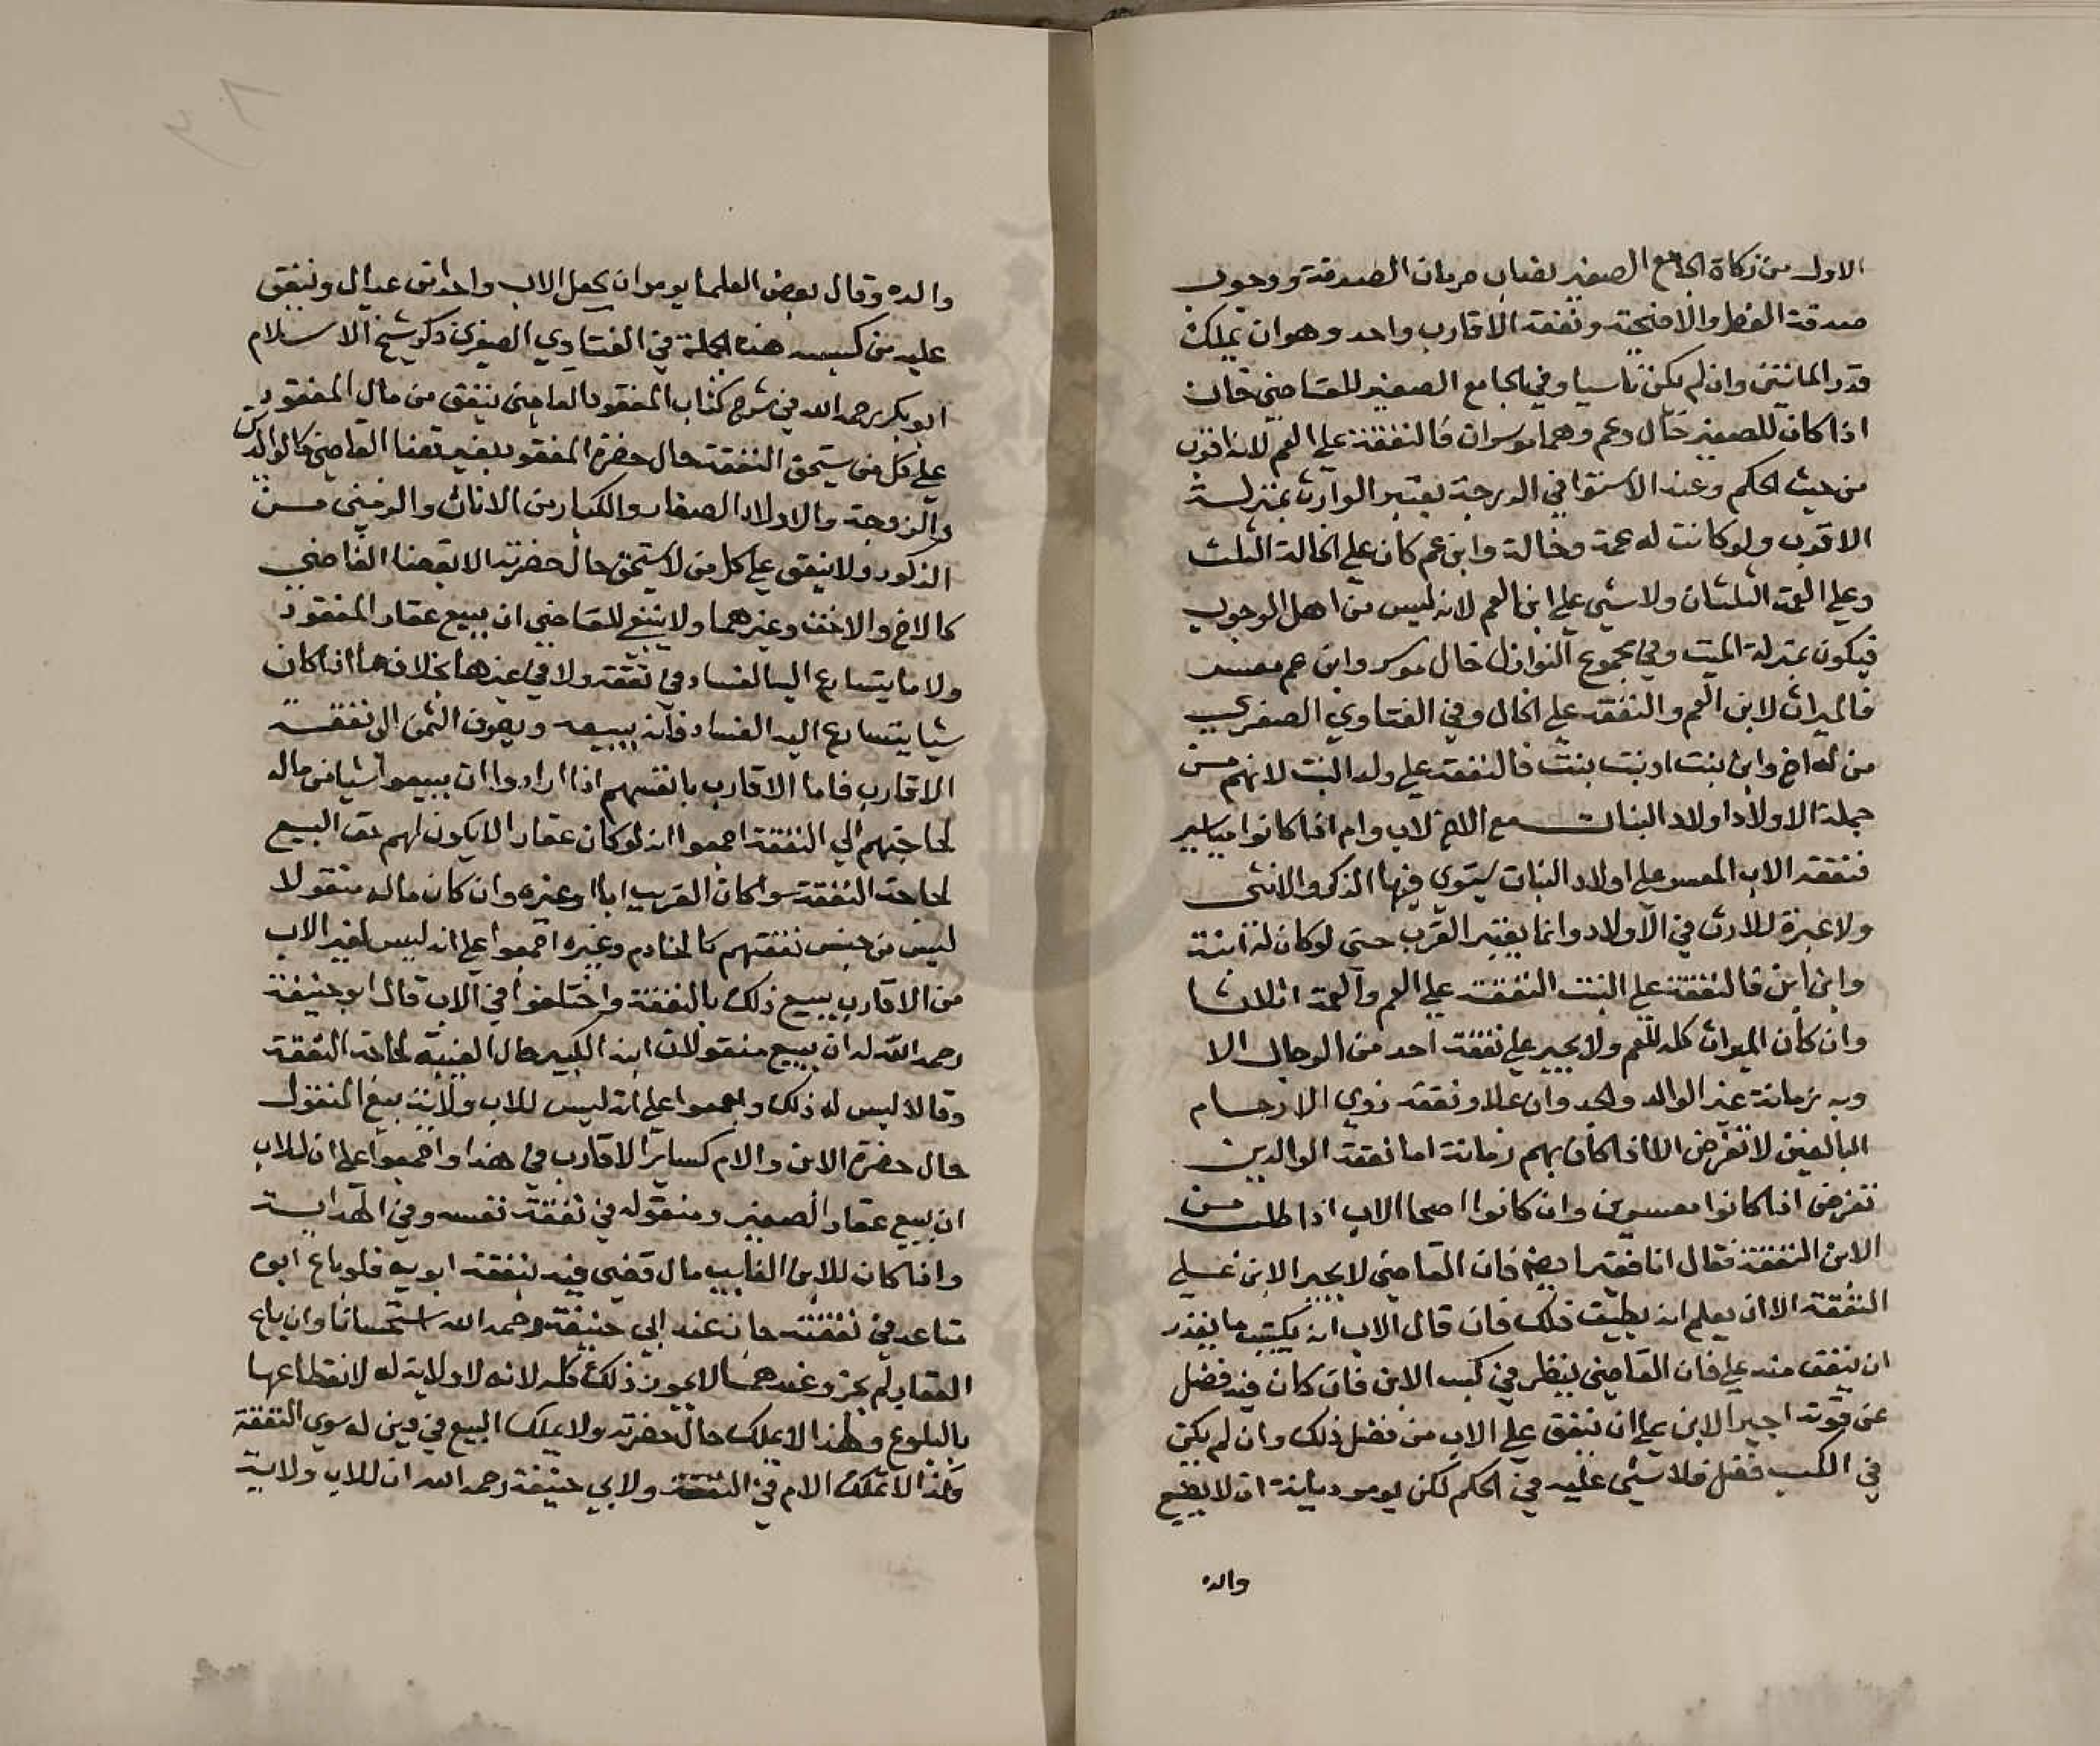 الاول من زكاة الجامع الصغير نصاب حرمان الصدقة ووجوب
صدقة الفطر والاضحية ونفقة الاقارب واحد وهو ان يملك
قدر المائتين وان لم يكن ناميا وفي الجامع الصغير للقاضي خان
اذا كان للصغير خال وعم وهما موسران فالنفقة علي العم لانه اقرب
من حيث الحكم وعند الاستوا في الدرجة يعتبر الوارث بمنزلة
الاقرب ولو كانت له عمة وخالة وابن عم كان علي الخالة الثلث
وعلي العمة الثلثان ولا شي علي ابن العم لانه ليس من اهل الوجوب
فيكون بمنزلة الميت وفي مجموع النوازل خال موسر وابن عم معسر
فالميراث لابن العم والنفقة علي الخال وفي الفتاوي الصغري
من له اخ وابن بنت او بنت بنت فالنفقة علي ولد البنت لانهم من
جملة الاولاد اولاد البنات مع الاخ لاب وام اذا كانوا مياسير
فنفقة الاب المعسر علي اولاد البنات يستوي فيها الذكر والانثي
ولا عبرة للارث في الاولاد وانما يعتبر القرب حتي لو كان له ابنة
وابن ابن فالنفقة علي البنت النفقة علي العم والعمة اثلاثا
وان كان الميراث كله للعم ولا يجبر علي نفقة احد من الرجال الا
وبه زمانة غير الوالد والجد وان علا ونفقة ذوي الارحام
البالغين لا تفرض الا اذا كان بهم زمانة اما نفقة الوالدين
تفرض اذا كانوا معسرين وان كانوا اصحا الاب اذا طلب من
الابن النفقة فقال انا فقير ايضا فان القاضي لا يجبر الابن علي
النفقة الا ان يعلم انه يطيق ذلك فان قال الاب انه يكتسب ما يقدر
ان ينفق منه علي فان القاضي ينظر في كسب الابن فان كان فيه فضل
عن قوته اجبر الابن علي ان ينفق علي الاب من فضل ذلك وان لم يكن
في الكسب فضل فلا شي عليه في الحكم لكن يومر ديانة ان لا يضيع
والده
والده وقال بعض العلما يومر ان يجعل الاب واحدا من عيال وينفق
عليه من كسبه هذه الجملة في الفتاوي الصغري ذكر شيخ الاسلام
ابو بكر رحمه الله في شرح كتاب المفقود القاضي ينفق من مال المفقود
علي كل من يستحق النفقة حال حضرة المفقود بغير قضا القاضي كالوالدين
والزوجة والاولاد الصغار والكبار من الاناث والزمني من
الذكور ولا ينفق علي كل من لا يستحق حال حضرته الا بقضا القاضي
كالاخ والاخت وغيرهما ولا ينبغي للقاضي ان يبيع عقار المفقود
ولا ما يتسارع اليه الفساد في نفقة ولا في غيرها بخلاف ما اذا كان
شيا يتسارع اليه الفساد فانه يبيعه ويصرف الثمن الي نفقة
الاقارب فاما الاقارب بانفسهم اذا ارادوا ان يبيعوا شيا من ماله
لحاجتهم الي النفقة اجمعوا انه لو كان عقارا لا يكون لهم حق البيع
لحاجة النفقة سوا كان القريب ابا او غيره وان كان ماله منقولا
ليس من جنس نفقتهم كالخادم وغيره اجمعوا علي انه ليس لغير الاب
من الاقارب بيع ذلك بالنفقة واختلفوا في الاب قال ابو حنيفة
رحمه الله له ان يبيع منقولات ابنه الكبير حال الغيبة لحاجة النفقة
وقالا ليس له ذلك واجمعوا علي انه ليس للاب ولاية بيع المنقول
حال حضرة الابن والام كساير الاقارب في هذا واجمعوا علي ان للاب
ان يبيع عقار الصغير ومنقوله في نفقة نفسه وفي الهداية
واذا كان للابن الغايب مال قضي فيه بنفقة ابويه فلو باع ابوه
متاعه في نفقته جاز عند ابي حنيفة رحمه الله استحسانا وان باع
العقار لم يجز وعندهما لا يجوز ذلك كله لانه لا ولاية له لانقطاعها
بالبلوغ ولهذا لا يملك حال حضرته ولا يملك البيع في دين له سوي النفقة
وكذا لا تملك الام في النفقة ولابي حنيفة رحمه الله ان للاب ولاية